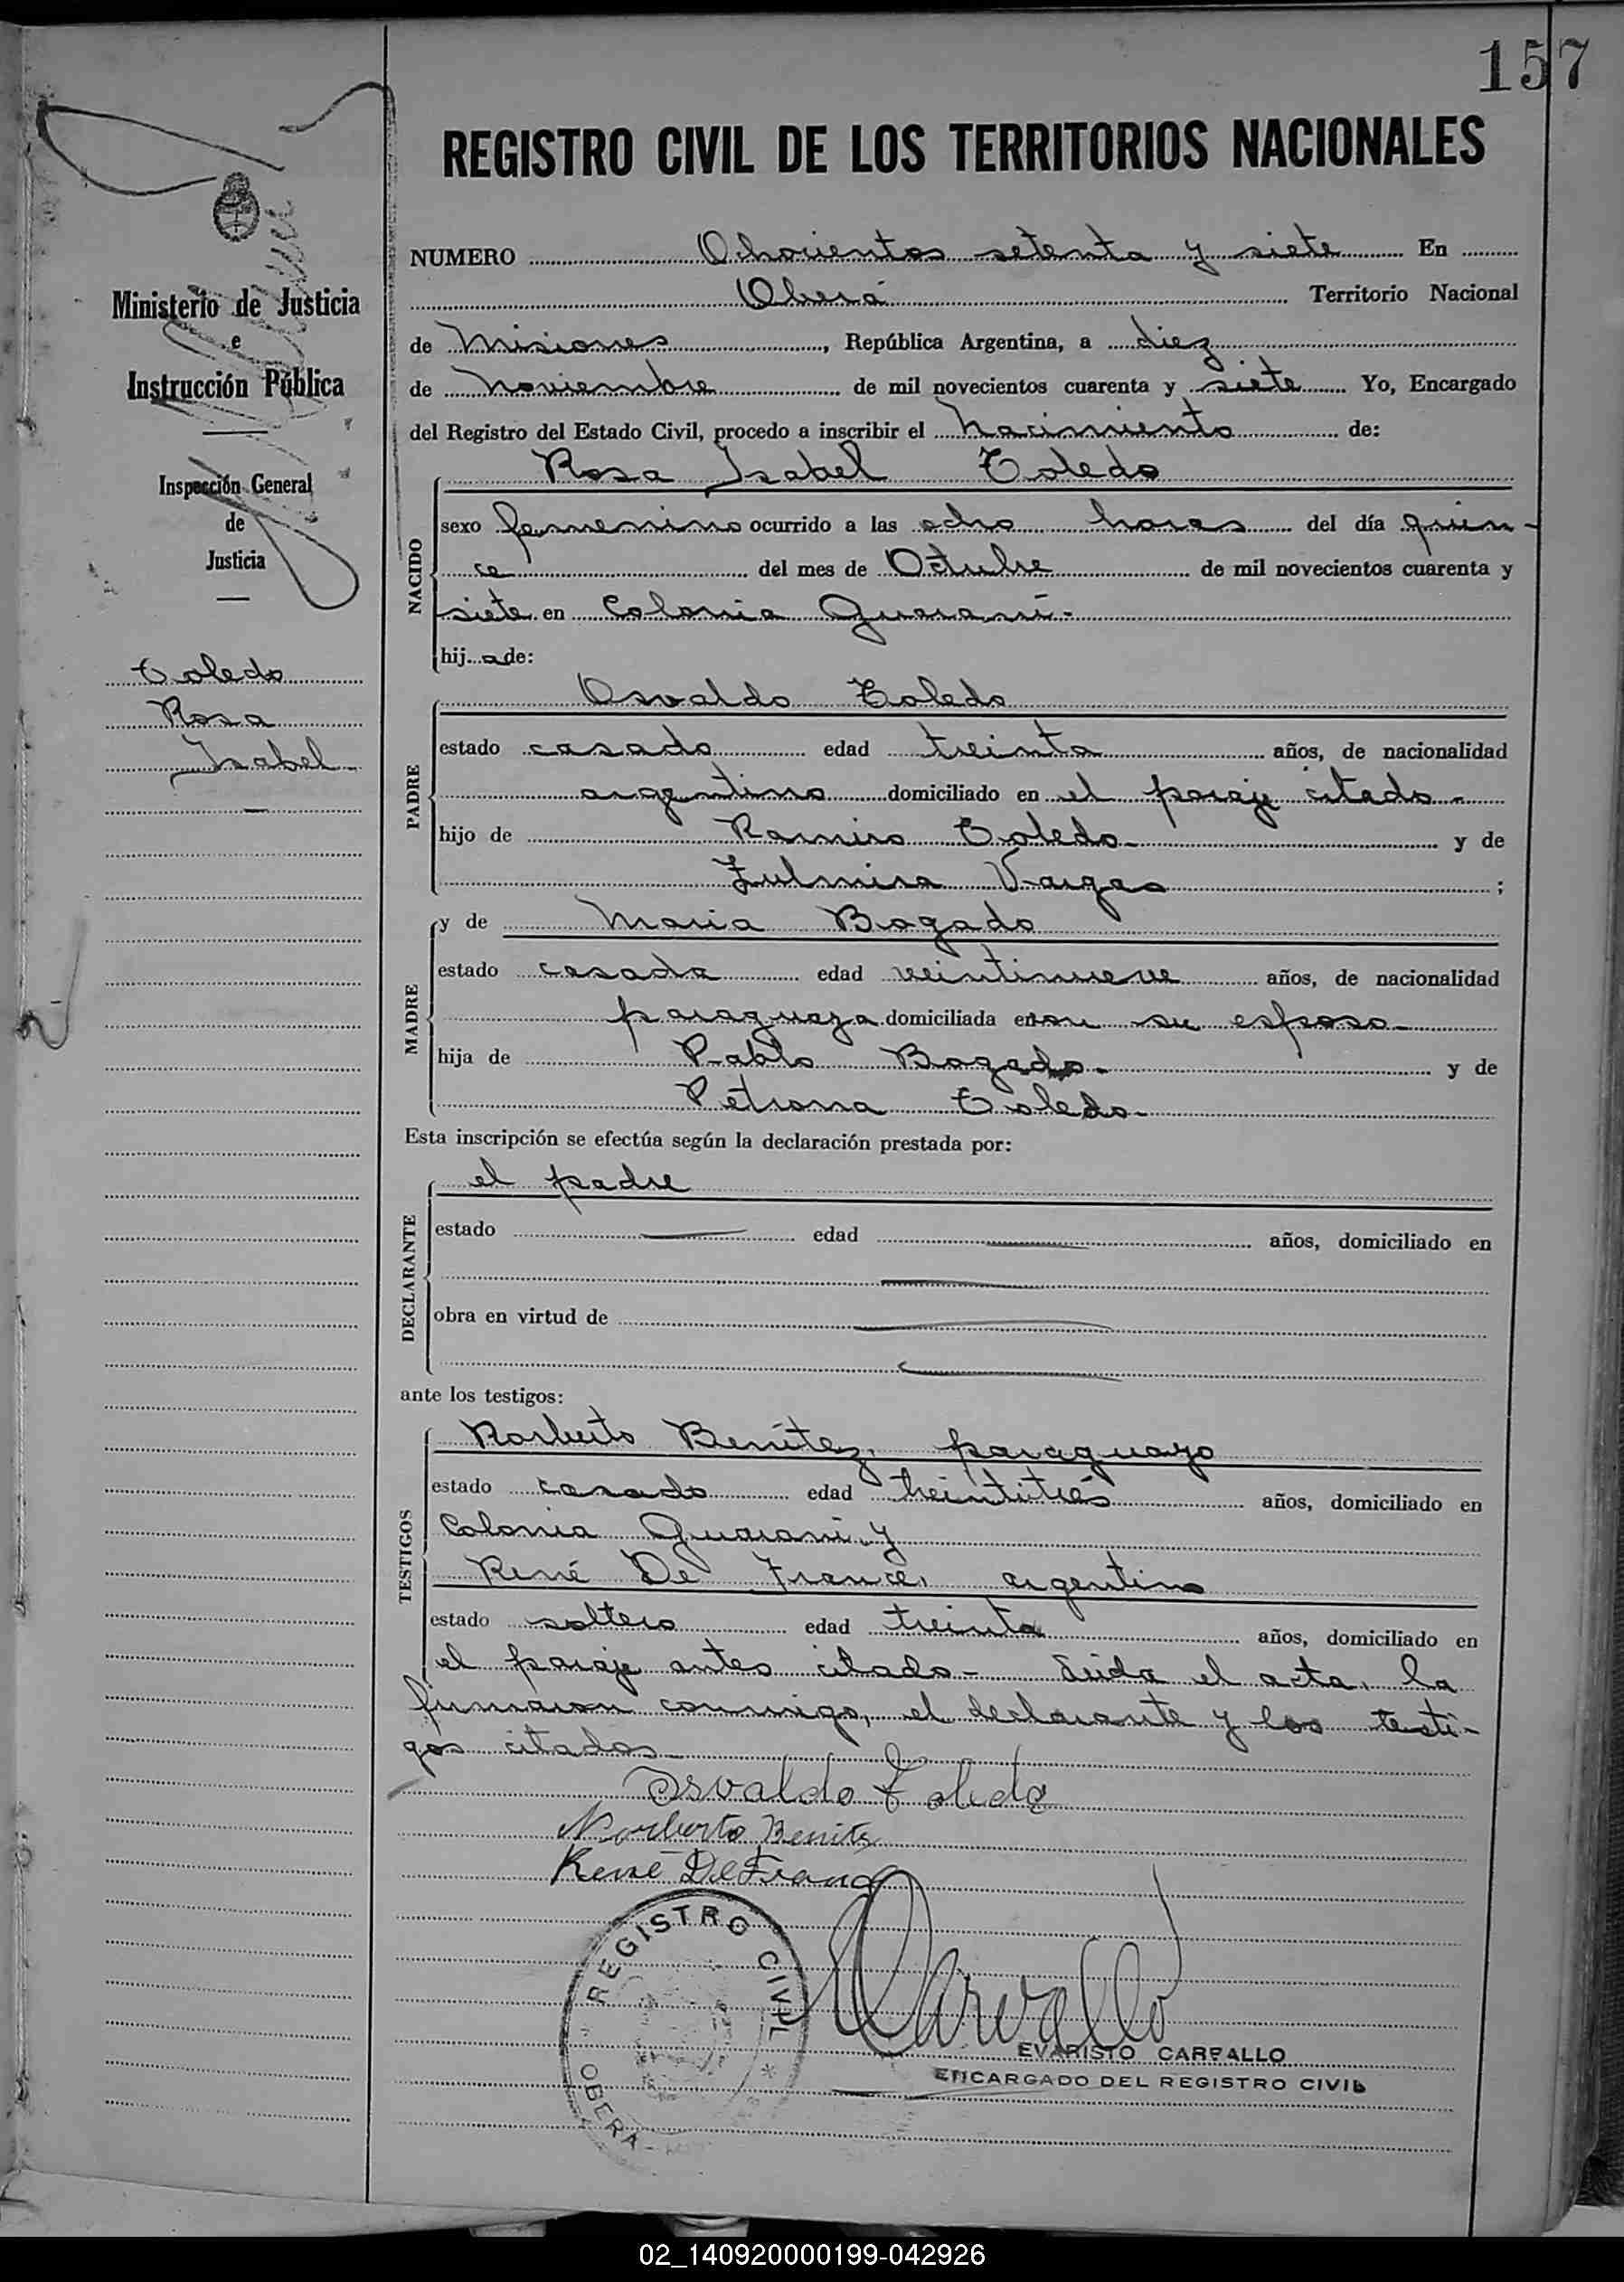 157
REGISTRO CIVIL DE LOS TERRITORIOS NACIONALES
Ministerio de Justicia
e
Instrucción Pública
Inspección General
de
Justicia
Toledo
Rosa
Isabel
NUMERO Ochocientos setenta y siete En
Oberá Territorio Nacional
de Misiones, República Argentina, a diez
de noviembre de mil novecientos cuarenta y siete Yo, Encargado
del Registro del Estado Civil, procedo a inscribir el nacimiento de:
NACIDO
Rosa Isabel Toledo
sexo femenino ocurrido a las ocho horas del día quin-
ce del mes de Octubre de mil novecientos cuarenta y
siete en Colonia Guaraní-
hija de:
PADRE
Osvaldo Toledo
estado casado edad treinta años, de nacionalidad
argentino domiciliado en el paraje citado-
hijo de Ramiro Toledo- y de
Zulmira Vargas ;
MADRE
y de Maria Bogado
estado casada edad veintinueve años, de nacionalidad
paraguaya domiciliada en con su esposo-
hija de Pablo Bogado- y de
Petrona Toledo-
Esta inscripción se efectúa según la declaración prestada por:
DECLARANTE
el padre
estado edad años, domiciliado en
obra en virtud de
ante los testigos:
TESTIGOS
Norberto Benítez, paraguayo
estado casado edad treintitrés años, domiciliado en
Colonia Guaraní y
René De France, argentino
estado soltero edad treinta años, domiciliado en
el paraje antes citado- Leida el acta, la
firmaron conmigo, el declarante y los testi-
gos citados-
Osvaldo Toledo
Norberto Benitez
René De Franc
REGISTRO CIVIL
OBERA
Carvallo
EVARISTO CARBALLO
ENCARGADO DEL REGISTRO CIVIL
02_140920000199-042926